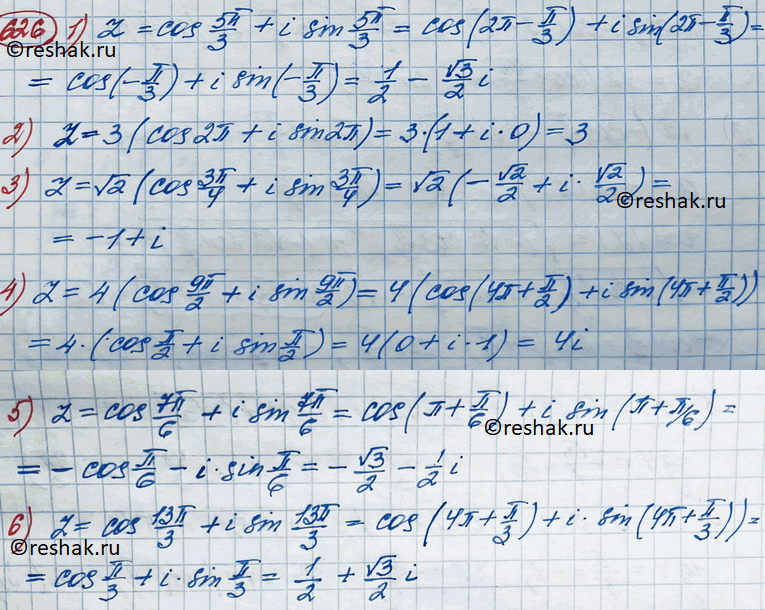 626 1) z = cos 5π/3 + i sin 5π/3 = cos(2π-π/3) + i sin(2π-π/3) =
= cos(-π/3) + i sin(-π/3) = 1/2 - √3/2 i
2) z = 3(cos2π + i sin2π) = 3·(1 + i·0) = 3
3) z = √2 (cos 3π/4 + i sin 3π/4) = √2 (-√2/2 + i·√2/2) =
©reshak.ru
= -1 + i
4) z = 4(cos 9π/2 + i sin 9π/2) = 4(cos(4π+π/2) + i sin(4π+π/2))
= 4·(cos π/2 + i sin π/2) = 4(0 + i·1) = 4i
5) z = cos 7π/6 + i sin 7π/6 = cos(π+π/6) + i sin(π+π/6) =
©reshak.ru
©reshak.ru
= -cos π/6 - i·sin π/6 = -√3/2 - 1/2 i
6) z = cos 13π/3 + i sin 13π/3 = cos(4π+π/3) + i·sin(4π+π/3)) =
©reshak.ru
= cos π/3 + i·sin π/3 = 1/2 + √3/2 i
©reshak.ru